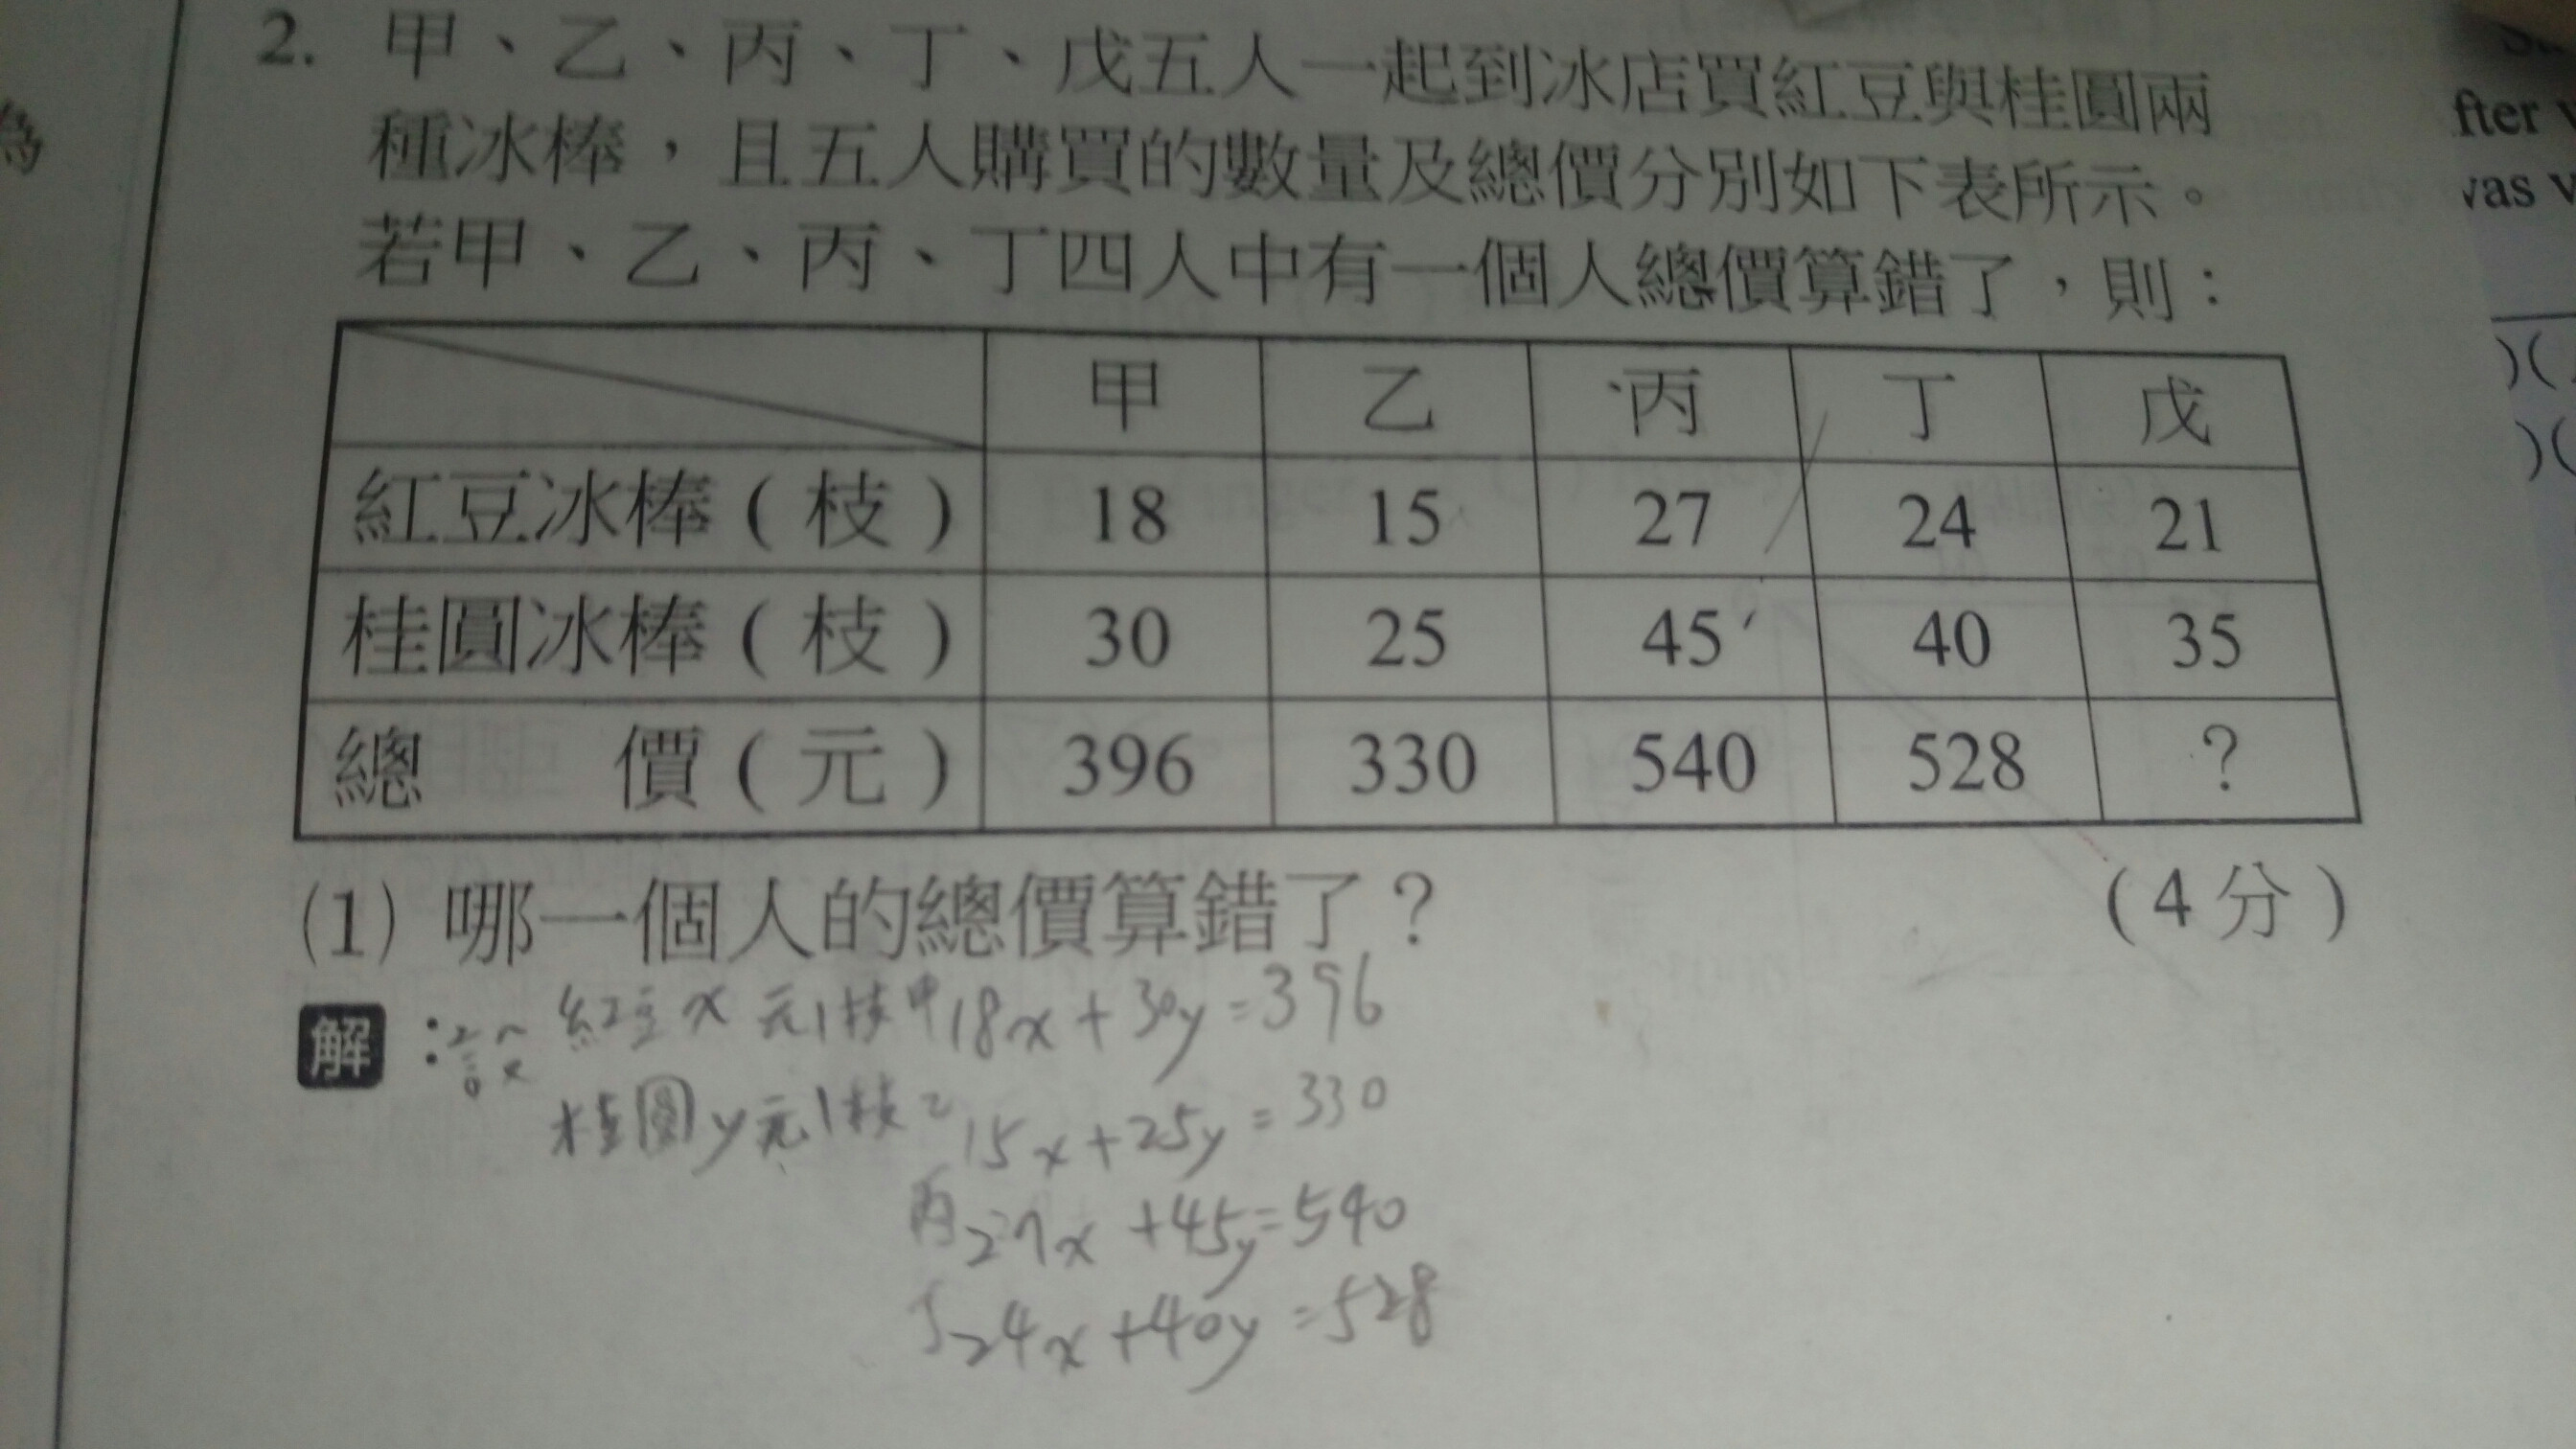 2. 甲、乙、丙、丁、戊五人一起到冰店買紅豆與桂圓兩
種冰棒，且五人購買的數量及總價分別如下表所示。
若甲、乙、丙、丁四人中有一個人總價算錯了，則：
甲 乙 丙 丁 戊
紅豆冰棒(枝) 18 15 27 24 21
桂圓冰棒(枝) 30 25 45 40 35
總 價(元) 396 330 540 528 ?
(1) 哪一個人的總價算錯了？ (4分)
解： 紅豆 x 元1枝 甲 18x+30y=396
桂圓 y 元1枝 乙 15x+25y=330
丙 27x+45y=540
丁 24x+40y=528
為
fter
was